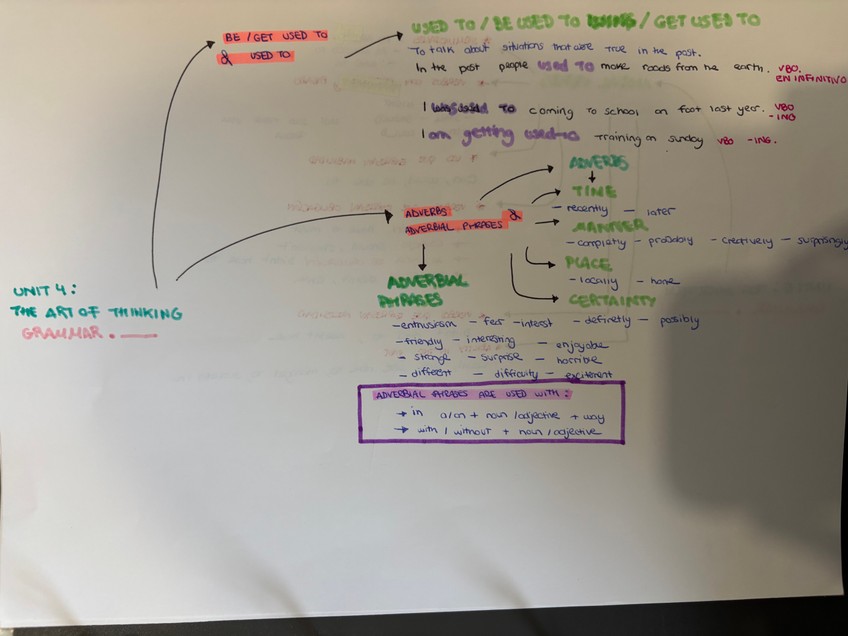 BE / GET USED TO
& USED TO
USED TO / BE USED TO / GET USED TO
To talk about situations that were true in the past.
In the past people used to make roads from the earth. VBO. EN INFINITIVO
I used to coming to school on foot last year. VBO -ING
I am getting used to training on sunday VBO -ING.
ADVERBS
TIME
- recently - later
ADVERBS &
ADVERBIAL PHRASES
MANNER
- completly - probably - creatively - surprisingly
PLACE
- locally - home
CERTAINTY
- definetly - possibly
UNIT 4:
THE ART OF THINKING
GRAMMAR.
ADVERBIAL
PHRASES
- enthusiasm - fear - interest
- friendly - interesting - enjoyable
- strange - surprise - horrible
- different - difficulty - excitement
ADVERBIAL PHRASES ARE USED WITH:
→ in a/an + noun / adjective + way
→ with / without + noun / adjective